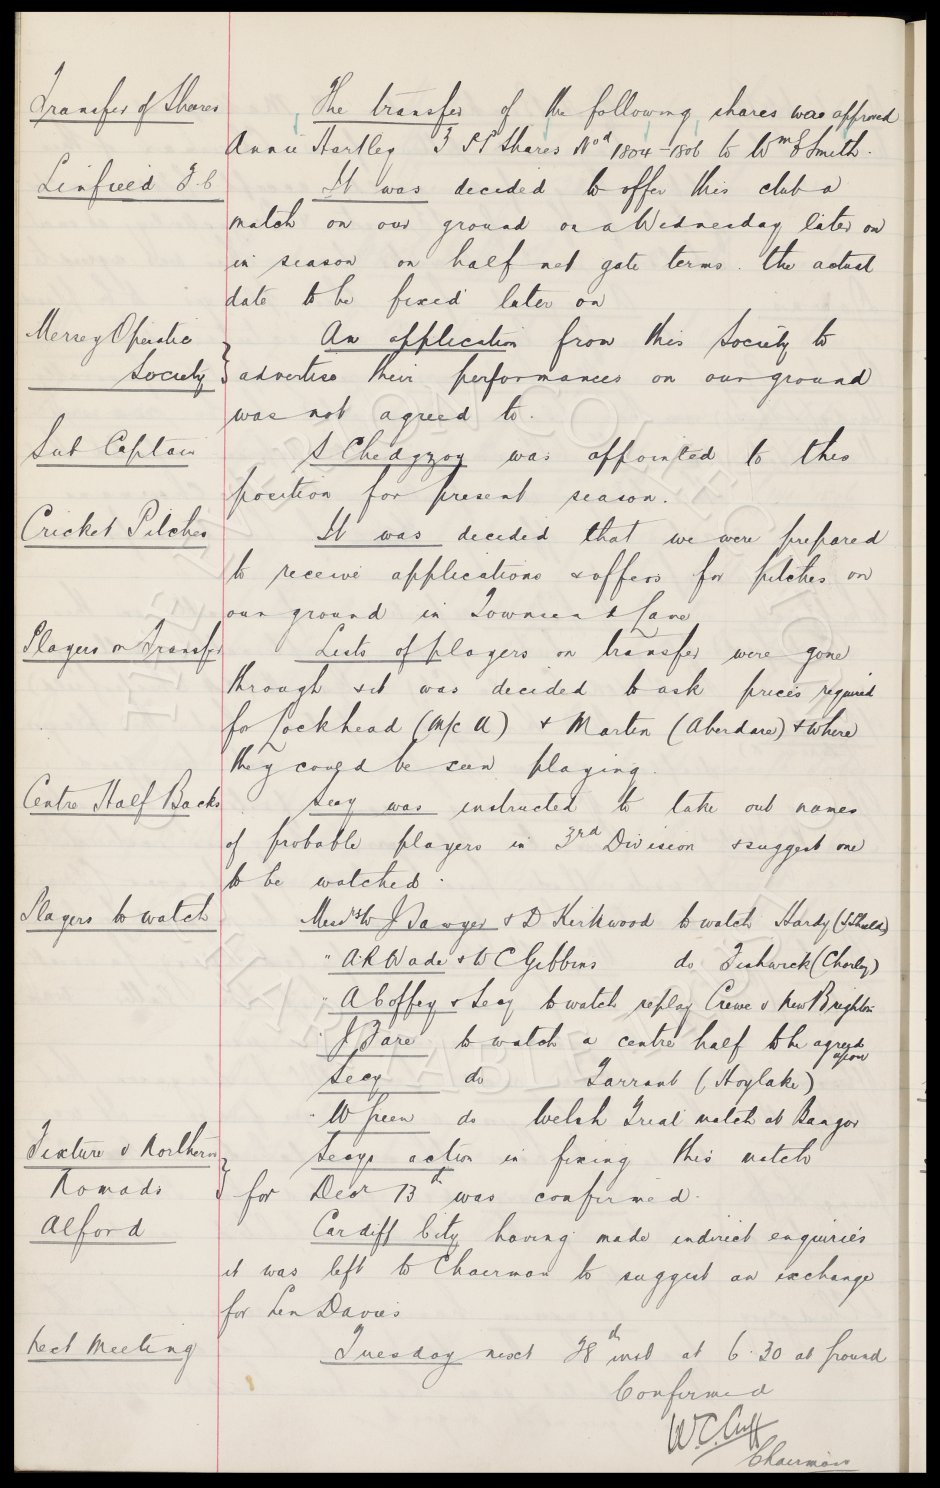 Transfer of Shares The transfer of the following shares was approved
Annie Hartley 3 Shares Nos 1804-1806 to Wm Smith.
Linfield F.C It was decided to offer this club a
match on our ground on a Wednesday later on
in season on half net gate terms. the actual
date to be fixed later on
Mersey Operatic An application from this Society to
Society advertise their performances on our ground
was not agreed to.
Sub Captain S Chedgzoy was appointed to this
position for present season.
Cricket Pitches It was decided that we were prepared
to receive applications & offers for pitches on
our ground in Townsend Lane
Players on Transfer Lists of players on transfer were gone
through & it was decided to ask prices required
for Lockhead (M/c U) & Martin (Aberdare) & where
they could be seen playing.
Centre Half Backs Secy was instructed to take out names
of probable players in 3rd Division & suggest one
to be watched.
Players to watch Messrs W J Sawyer & D Kirkwood to watch Hardy (S Shields)
" A.R Wade & W C Gibbins do Fishwick (Chorley)
" A Coffey & Secy to watch replay Crewe v New Brighton
" J Fare to watch a centre half to be agreed
upon
Secy do Tarrant (Hoylake)
" W Green do Welsh Trial match at Bangor
Fixture v Northern Secys action in fixing this match
Nomads for Decr 13th was confirmed.
Alford Cardiff City having made indirect enquiries
it was left to Chairman to suggest an exchange
for Len Davies
Next Meeting Tuesday next 28th inst at 6.30 at ground
Confirmed
W.C. Cuff
Chairman
THE EVERTON COLLECTION
CHARITABLE TRUST